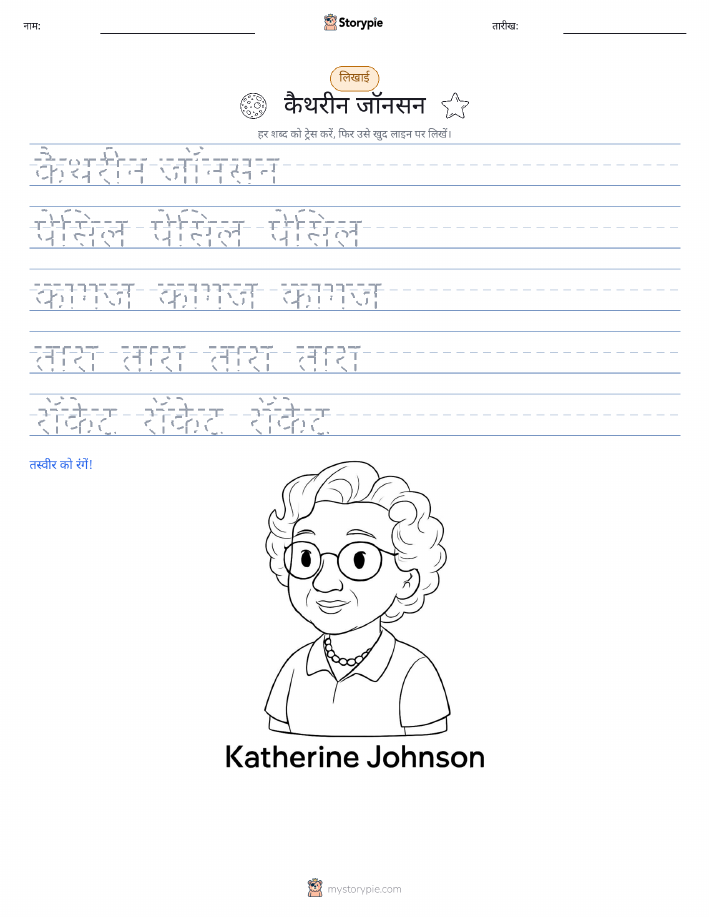 नाम: Storypie तारीख:
लिखाई
कैथरीन जॉनसन
हर शब्द को ट्रेस करें, फिर उसे खुद लाइन पर लिखें।
कैथरीन जॉनसन
पेंसिल पेंसिल पेंसिल
कागज कागज कागज
तारा तारा तारा तारा
रॉकेट रॉकेट रॉकेट
तस्वीर को रंगें!
Katherine Johnson
mystorypie.com